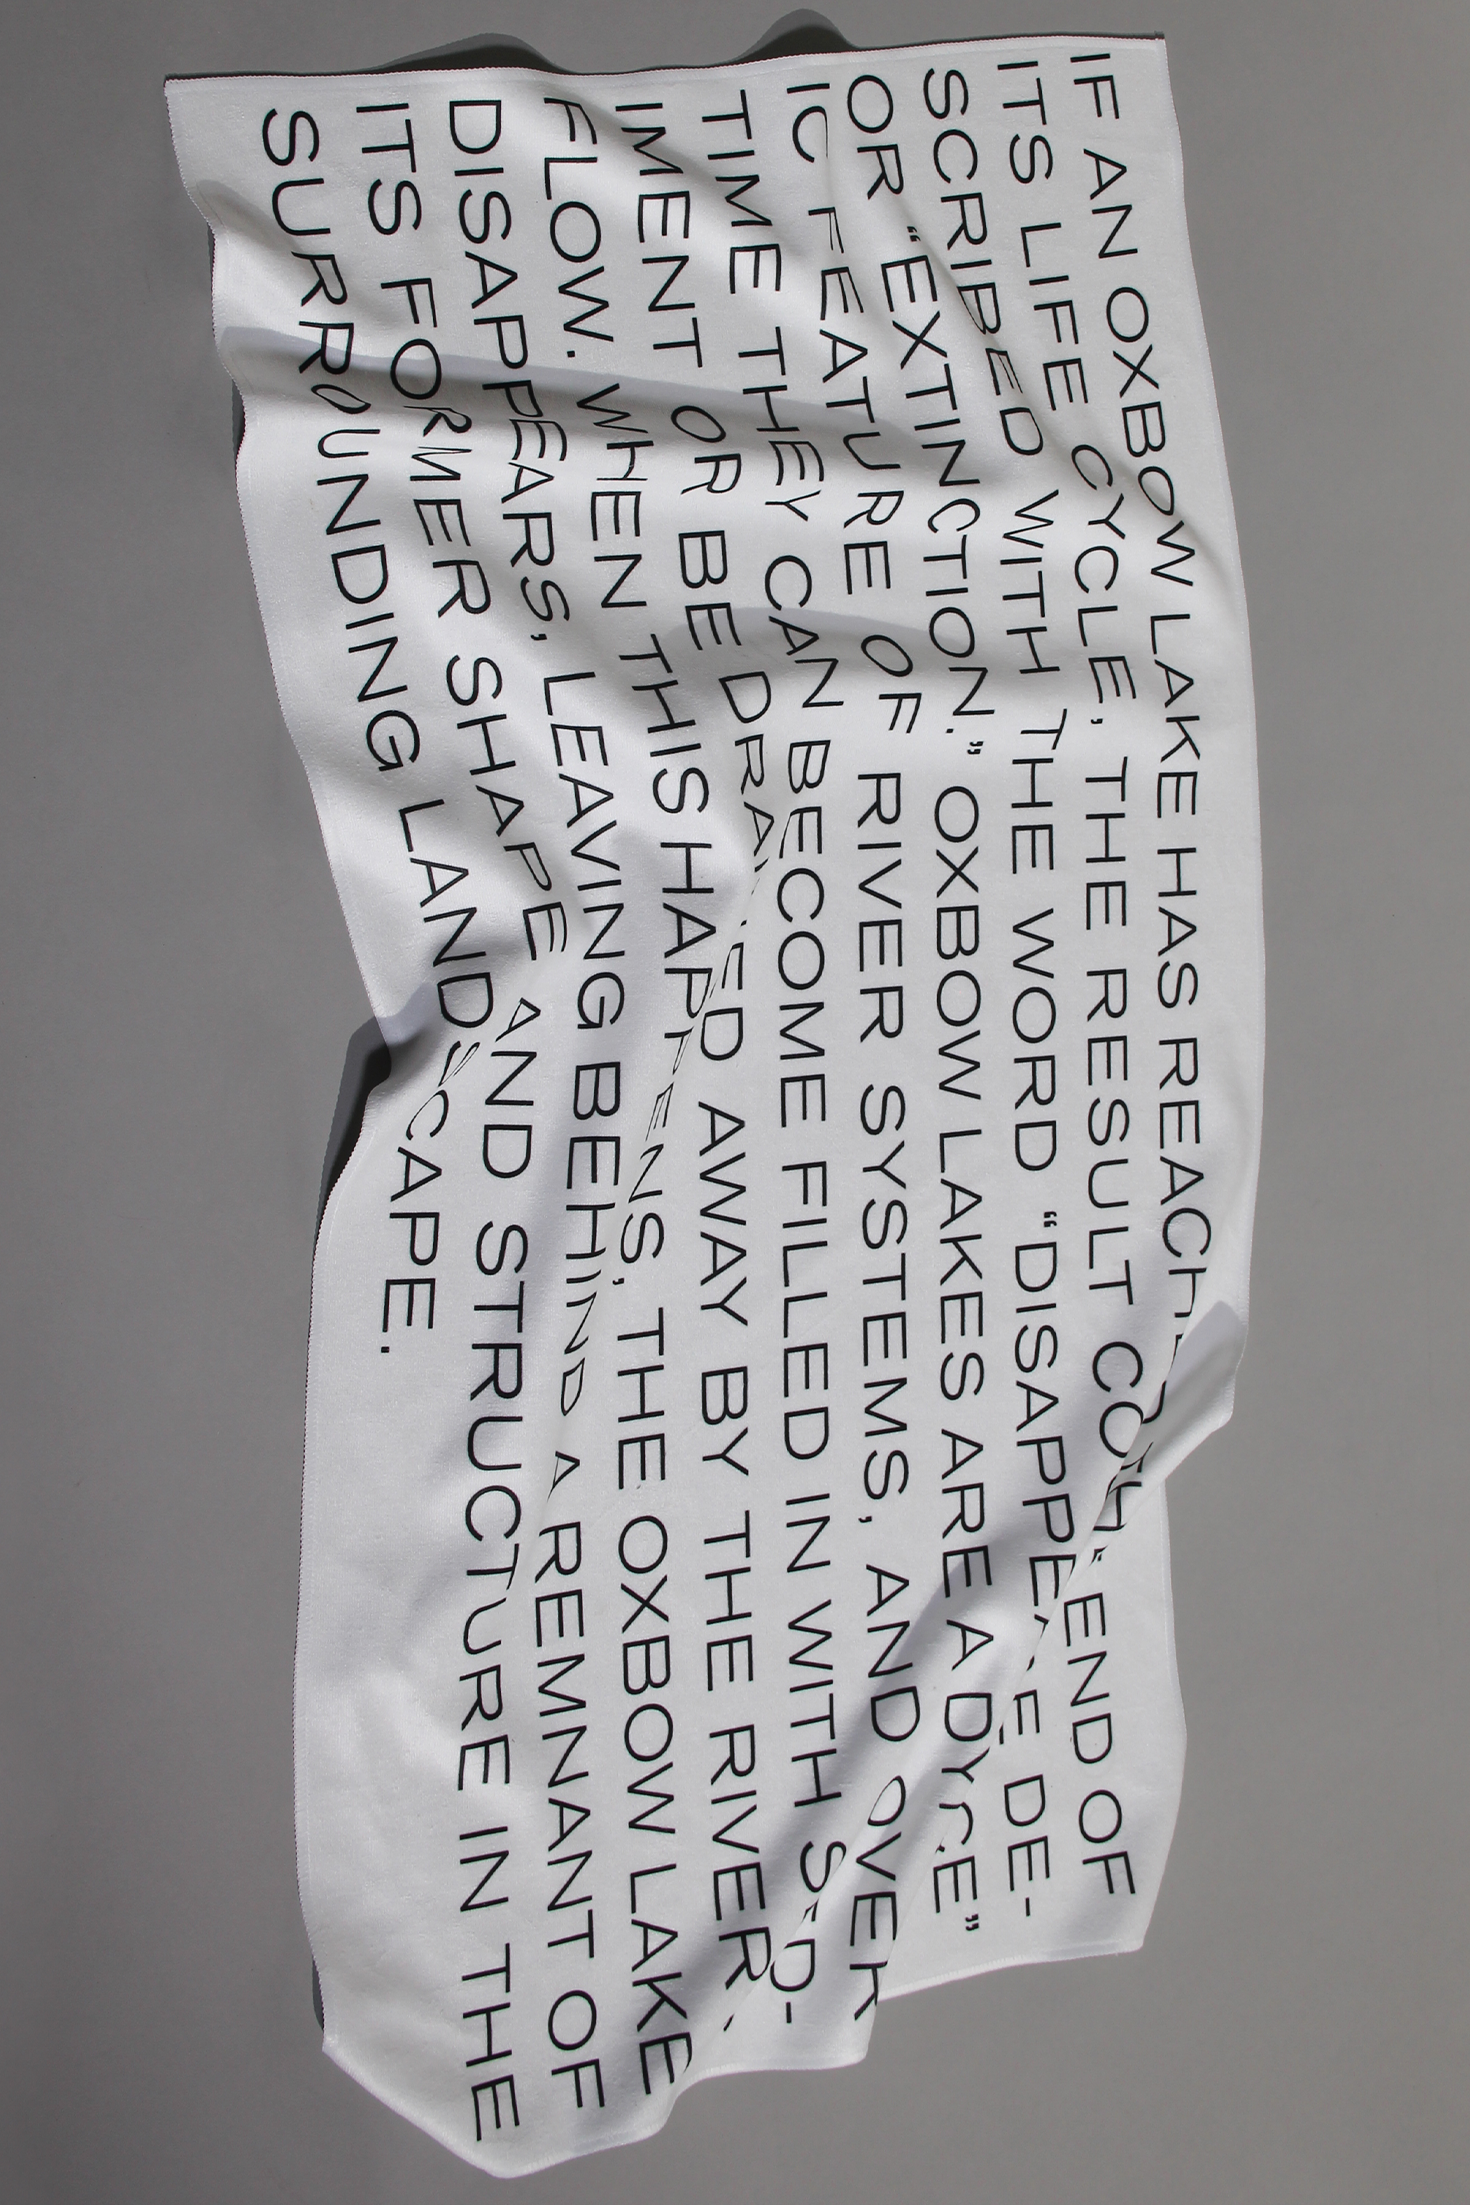 IF AN OXBOW LAKE HAS REACHED END OF
ITS LIFE CYCLE, THE RESULT DE-
SCRIBED WITH THE WORD “DISAPPEARANCE”
OR “EXTINCTION.” OXBOW LAKES ARE A
IC FEATURE OF RIVER SYSTEMS, AND OVER
TIME THEY CAN BECOME FILLED IN WITH SED-
IMENT OR BE DRAINED AWAY BY THE RIVER
FLOW. WHEN THIS HAPPENS, THE OXBOW LAKE
DISAPPEARS, LEAVING BEHIND A REMNANT OF
ITS FORMER SHAPE AND STRUCTURE IN THE
SURROUNDING LANDSCAPE.